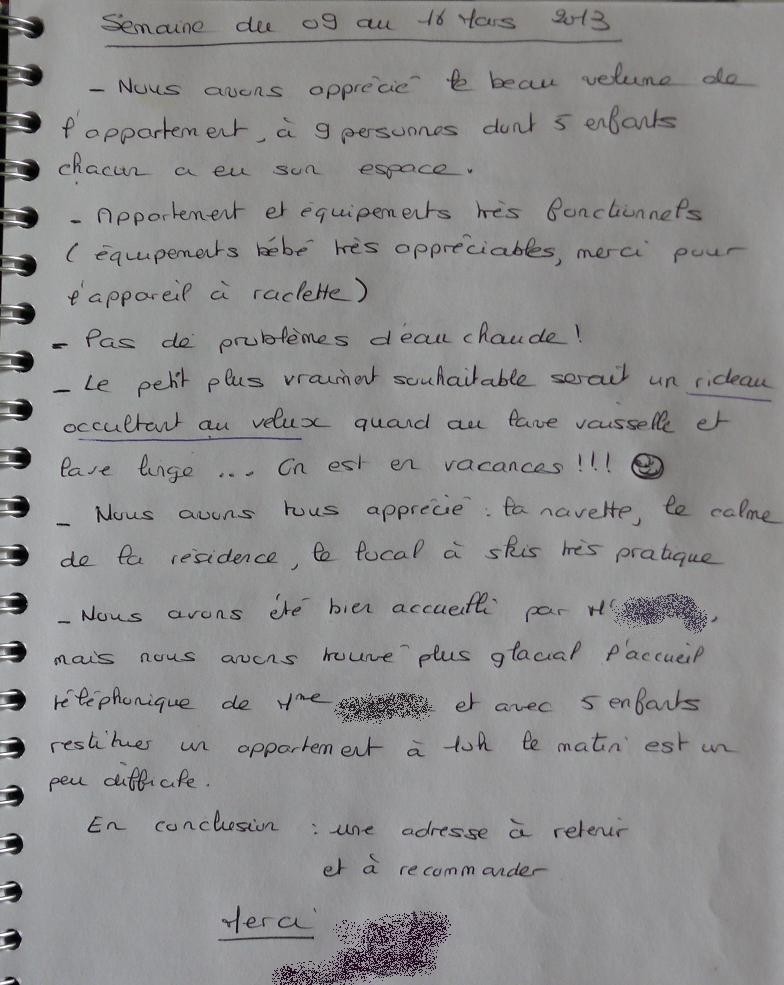 Semaine du 09 au 16 Mars 2013
- Nous avons apprécié le beau volume de
l'appartement, à 9 personnes dont 5 enfants
chacun a eu son espace.
- Appartement et équipements très fonctionnels
( équipements bébé très appréciables, merci pour
l'appareil à raclette)
- Pas de problèmes d'eau chaude !
- Le petit plus vraiment souhaitable serait un rideau
occultant au velux quand au lave vaisselle et
lave linge ... On est en vacances !!!
- Nous avons tous apprécié : la navette, le calme
de la résidence, le local à skis très pratique
- Nous avons été bien accueilli par Mr ,
mais nous avons trouvé plus glacial l'accueil
téléphonique de Mme et avec 5 enfants
restituer un appartement à 10h le matin est un
peu difficile.
En conclusion : une adresse à retenir
et à recommander
Merci